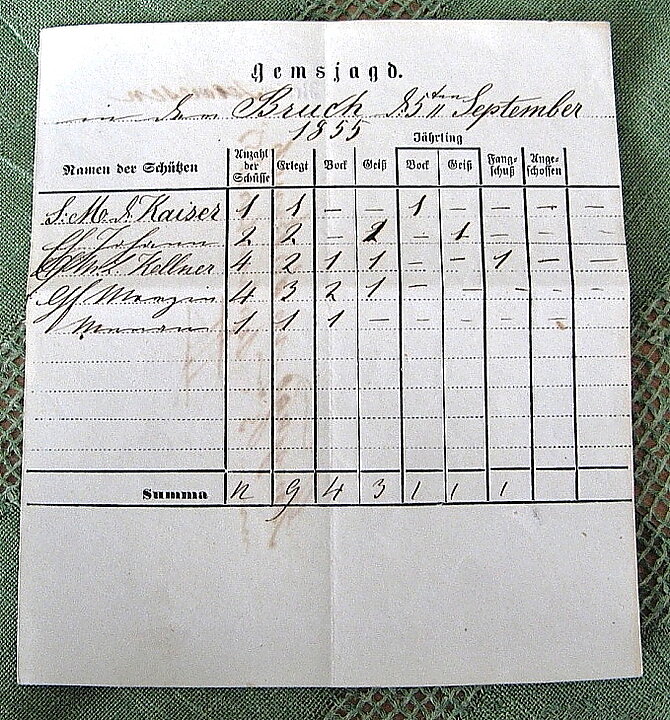 Gemsjagd.
in den Bruch d. 5ten September
1855
Jährling
Namen der Schützen Anzahl der Schüsse Erlegt Bock Geiß Bock Geiß Fang-schuß Ange-schossen
S. M. d. Kaiser 1 1 – – 1 – – – –
Johann 2 2 – 2 – 1 – – –
Kellner 4 2 1 1 – – 1 – –
Gf 4 3 2 1 – – – – –
1 1 1 – – – – –
Summa 12 9 4 3 1 1 1